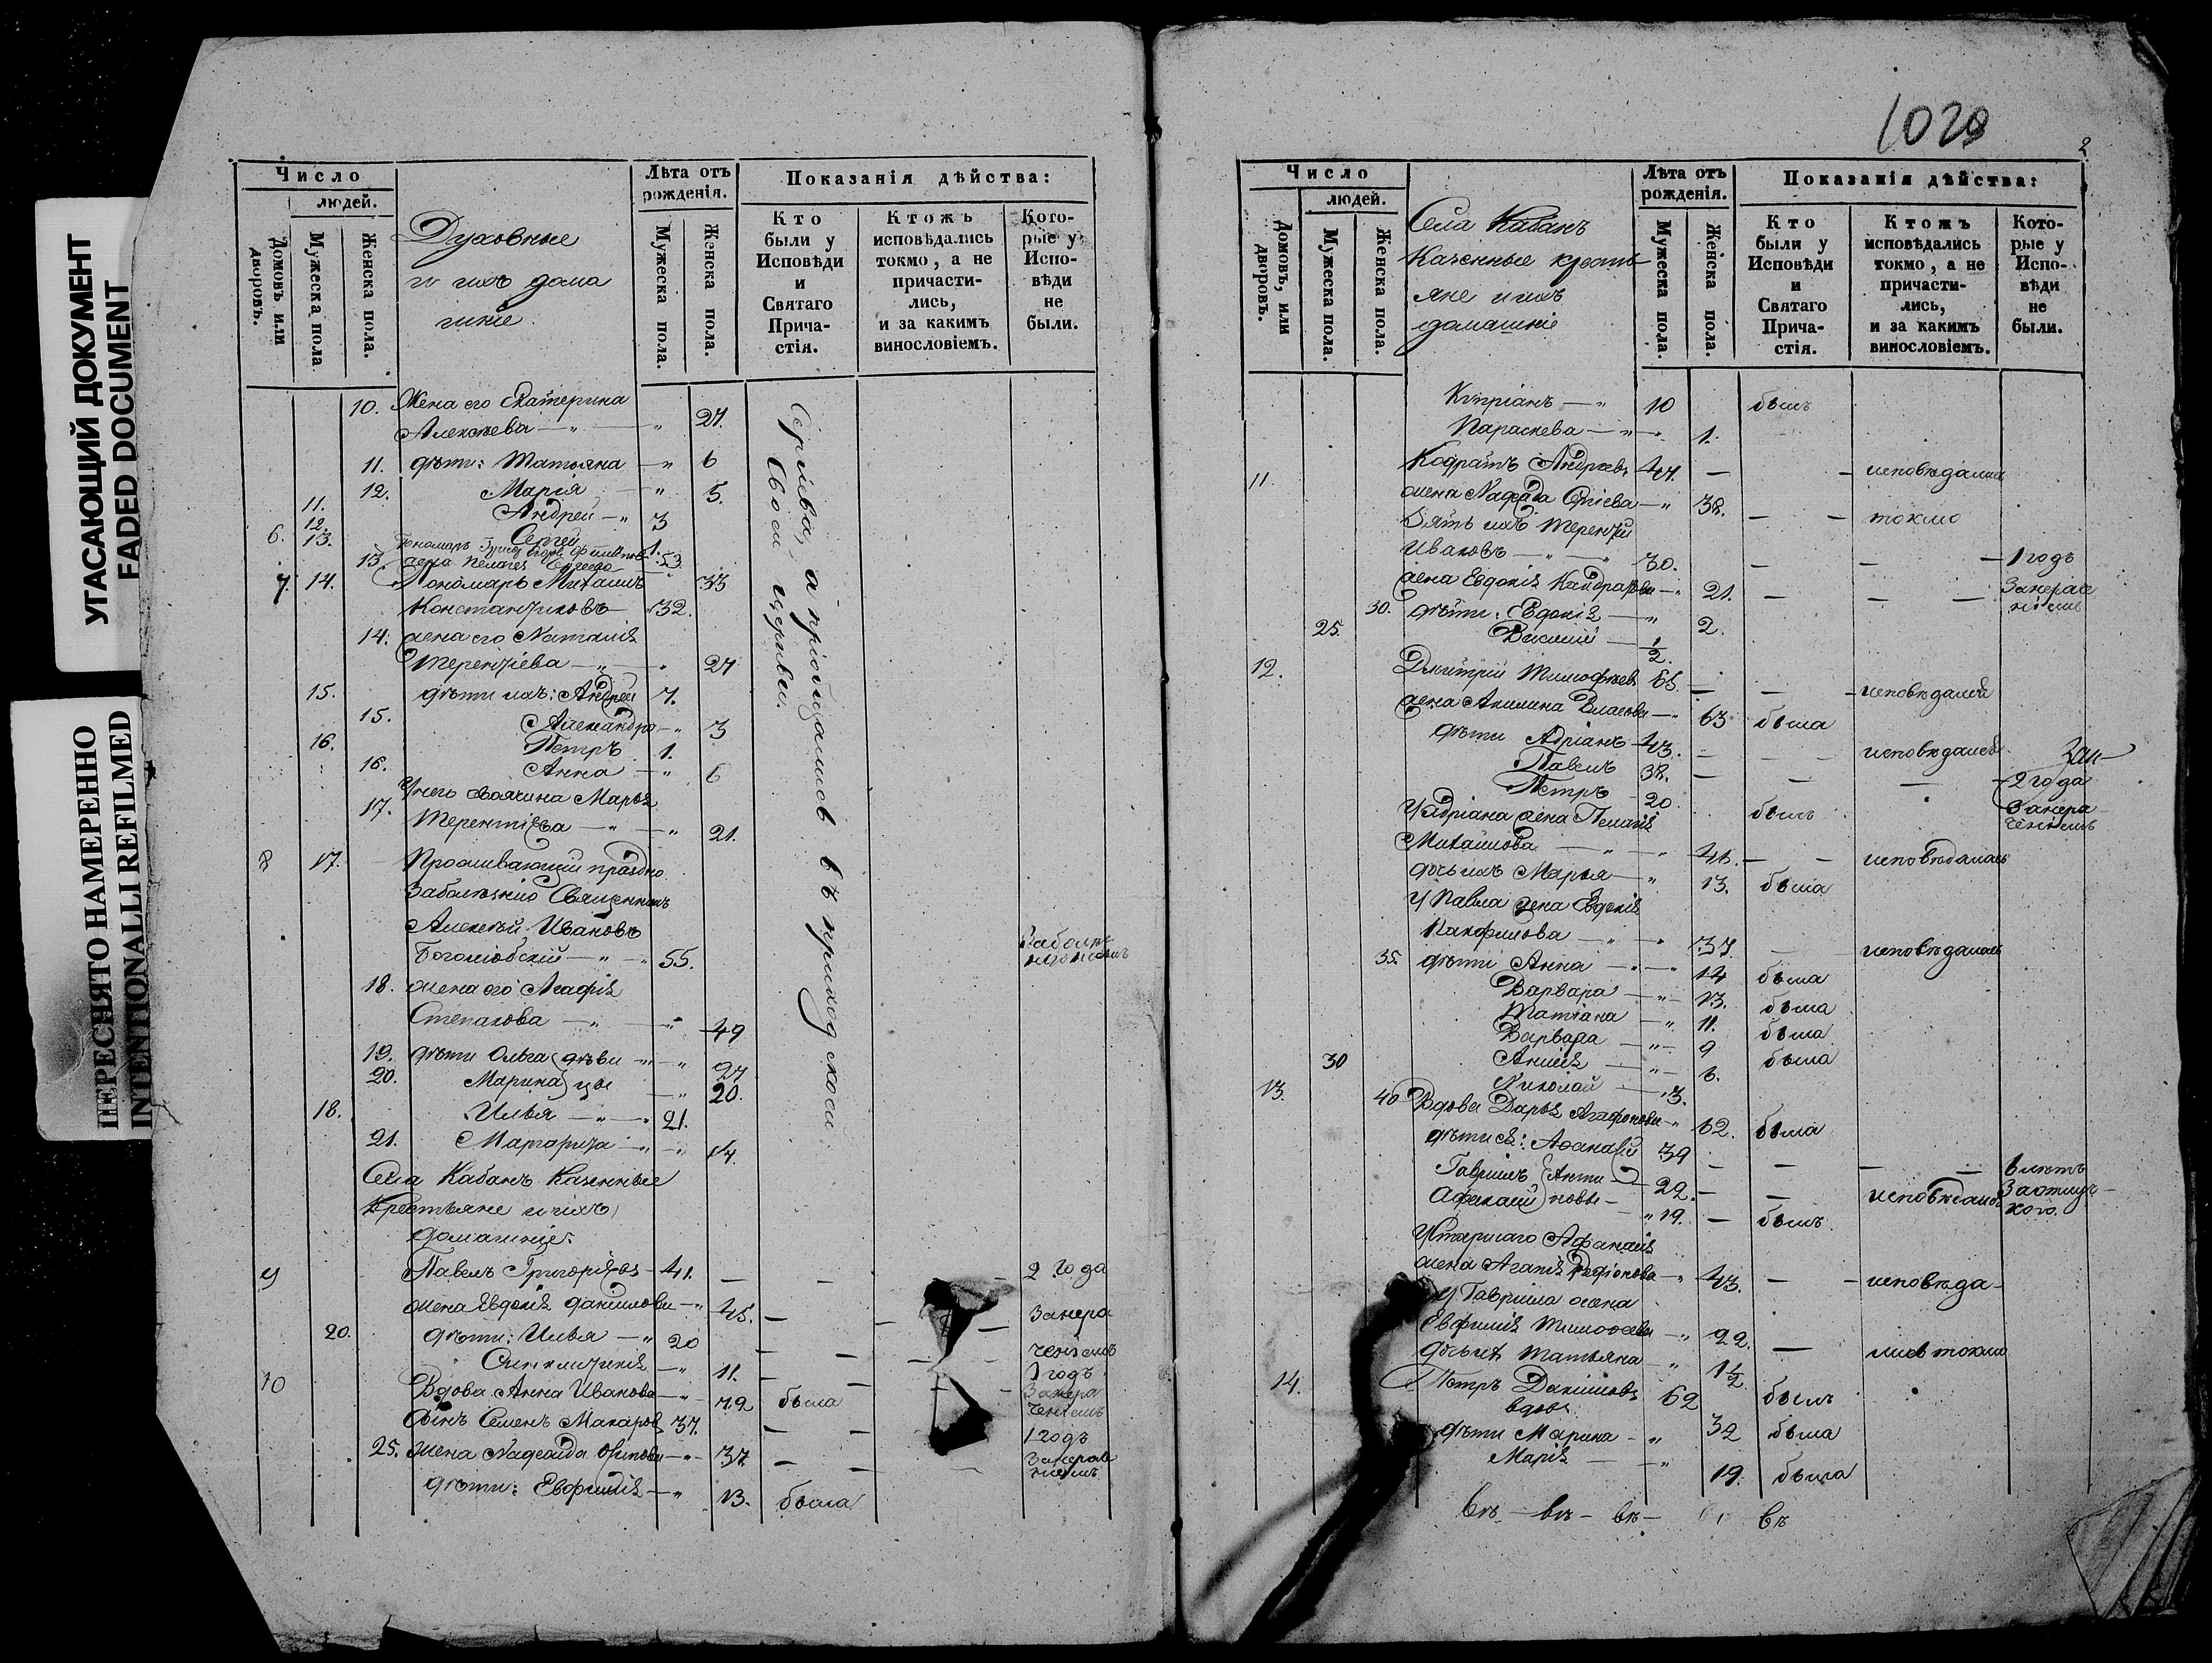 УГАСАЮЩИЙ ДОКУМЕНТ
FADED DOCUMENT
ПЕРЕСНЯТО НАМЕРЕННО
INTENTIONALLI REFILMED
Число
людей.
Домовъ или дворовъ.
Мужеска пола
Женска пола.
Духовные
и ихъ дома
шніе.
Лѣта отъ рожденія.
Мужеска пола.
Женска пола.
Показанія дѣйства:
Кто были у Исповѣди и Святаго Прича-стія.
Ктожъ исповѣдались токмо, а не причасти-лись, и за какимъ винословіемъ.
Кото-рые у Испо-вѣди не были.
10. Жена его Екатерина
Алексѣева — " — " 27.
11. дѣти: Татьяна — " 6
12. Марія — " 5.
11. Андрей — " 3
12. Сергей 1.
6. 13. Пономарь 53
13. жена Пелагея
7. 14. Пономарь Михаилъ 33
Константиновъ — 32.
14. жена его Наталія
Терентіева — " — " 27
15. дѣти ихъ: Андрей 7.
15. Александра — " 3
16. Петръ 1.
16. Анна — " 6
У него своячина Марья
17. Терентіева — " — " 21.
8 17. Проживающій праздно
за болѣзнію Священникъ
Алексѣй Ивановъ
Боголюбскій — " — " 55.
18. жена его Агафія
Степанова — " — " 49
19. дѣти Ольга (дѣви — " — " 27
20. Марина) цы — " 20.
18. Илья — " — " 21.
21. Маргарита — " — " 14.
а пріобщались въ приходской
своей церкви.
Села Кабанъ Казенные
Крестьяне и ихъ
домашніе:
9 Павелъ Григорьевъ — 41. — — 2 года
жена Евдокія Данилова — " 45. — — — за нера
20. дѣти: Илья — " 20 — — — ченіемъ
— " 11. — — — 1 годъ
10 Вдова Анна Иванова — " 72 была за нера
ченіемъ
сынъ Семенъ Макаровъ 37. — — 1 годъ
25. жена Надежда — " 37. — — за нераче
ніемъ
дѣти: Евфимія — " 13. была
1029
2
Число
людей.
Домовъ, или дворовъ.
Мужеска пола.
Женска пола.
Села Кабанъ
Казенные кресть
яне и ихъ
домашніе
Лѣта отъ рожденія.
Мужеска пола.
Женска пола.
Показанія дѣйства:
Кто были у Исповѣди и Святаго Прича-стія.
Ктожъ исповѣдались токмо, а не причасти-лись, и за какимъ винословіемъ.
Кото-рые у Испо-вѣди не были.
Кипріанъ — " 10 былъ
Параскева — " — 1.
11 Кодратъ Андреевъ 47. — — исповѣдались
жена — " 38. — — токмо
Зять ихъ Терентій
Ивановъ — " — 30. — — — 1 годъ
жена Евдокія Кондратова — " 21. — — — за нераче
ніемъ
30. дѣти: Евдокія — " 2.
25. Василій — 1/2.
12. Дмитрій Тимофѣевъ 65. — — исповѣдался
жена Акилина Власова — " 63 была
дѣти Адріанъ 43. — — исповѣдался
Павелъ 38. — — — 2 года
Петръ 20. былъ за нера
ченіемъ
У Адріана жена Пелагія
Михайлова — " — " 41. — — исповѣдалась
дочь ихъ Марья — " 13. была
У Павла жена Евдокія
— " — " 37. — исповѣдалась
35. дѣти Анна — " — " 14 была
Варвара — " — 13. была
Татіана — " 11. была
Варвара — " — 9 была
30 — " — 6.
Николай — " 3.
13. 40 Вдова Дарья Агафонова — " 62. была
дѣти ея: Афанасій 39 — — — — 6 лѣтъ
Гавріилъ (Анти — 22. — — исповѣдался за отлуч
Афанасій) повы — " 19. — былъ кою.
У старшаго Афанасія
жена Агапія Родіонова — " 43. — — исповѣда
У Гавріила жена
Евфимія Тимоѳеева — " 22.
дочь ихъ Татьяна — " 1 1/2 — лись токмо
14. Петръ Даниловъ 62 былъ
вдовъ
дѣти Марина — " 32 была
Марія — — " 19. была